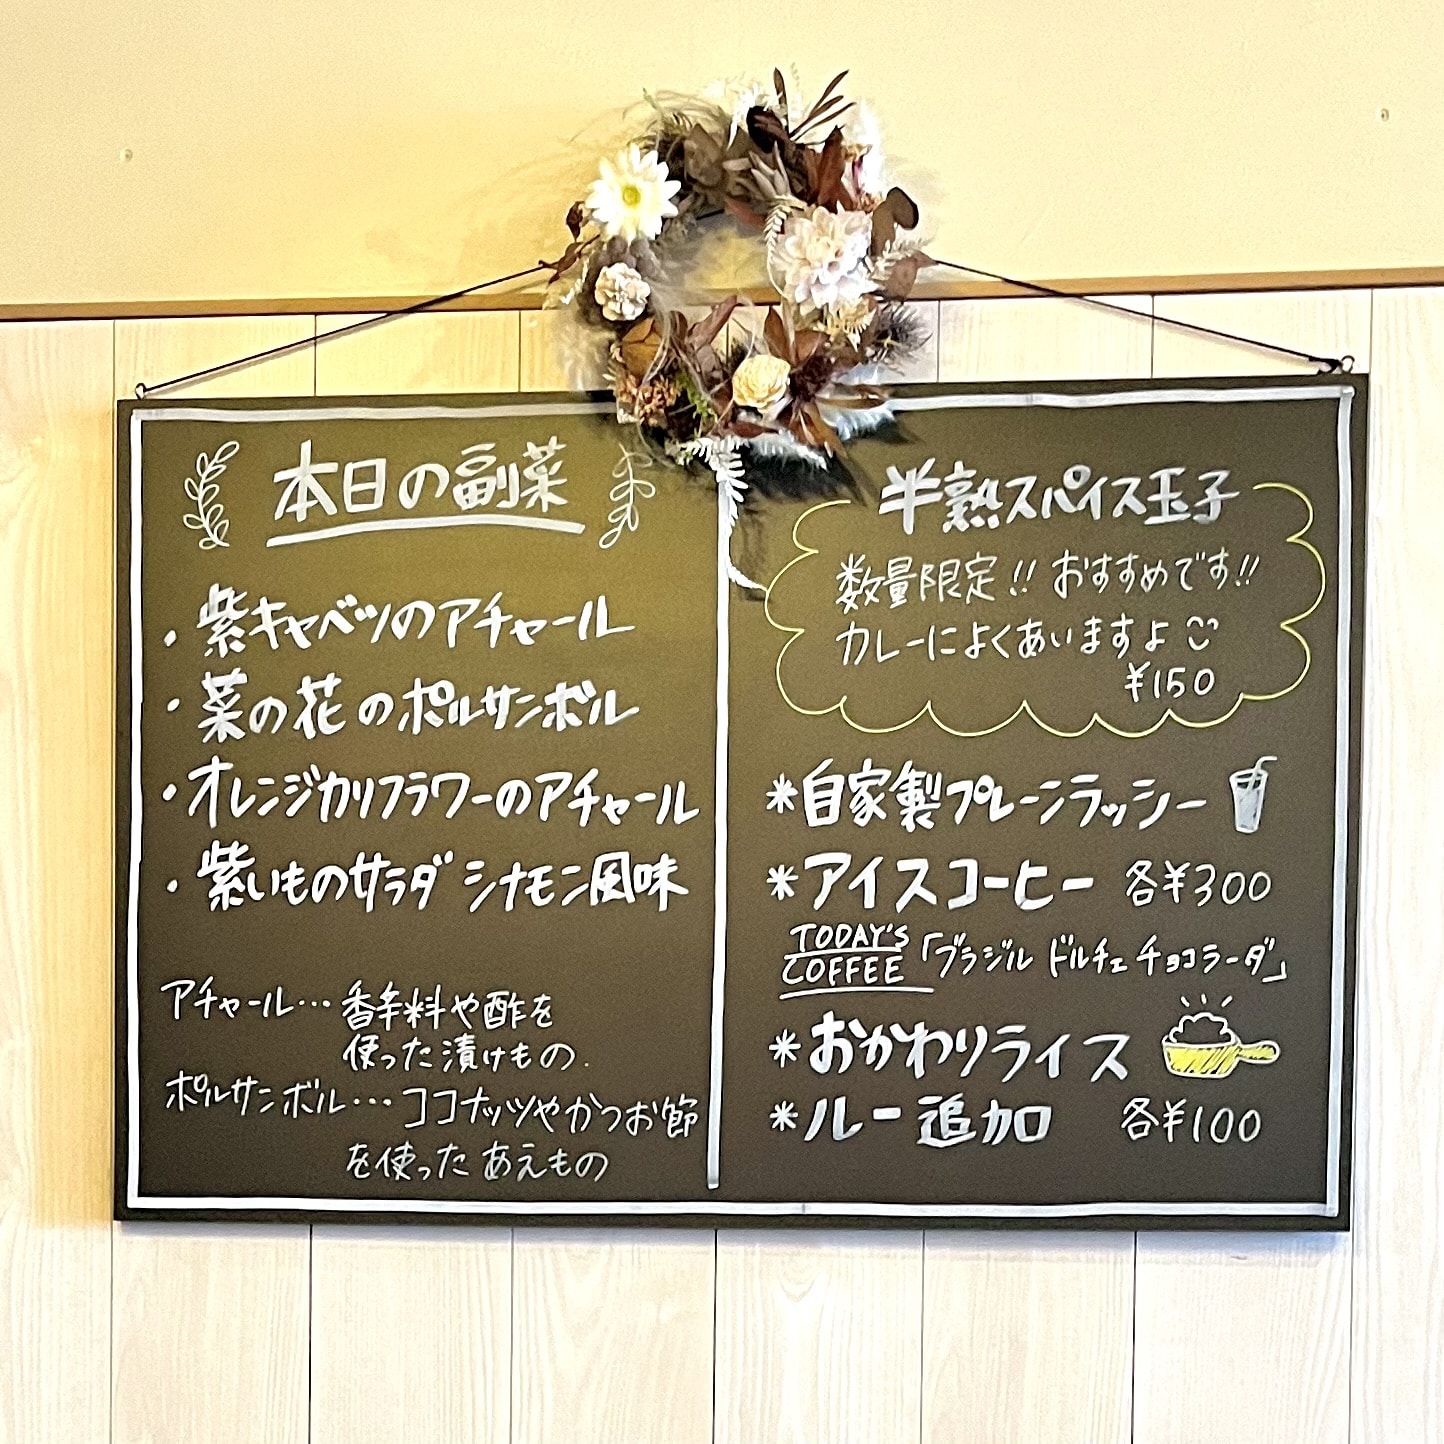 本日の副菜
・紫キャベツのアチャール
・菜の花のポルサンボル
・オレンジカリフラワーのアチャール
・紫いものサラダ シナモン風味
アチャール…香辛料や酢を
使った漬けもの.
ポルサンボル…ココナッツやかつお節
を使ったあえもの
半熟スパイス玉子
数量限定!! おすすめです!!
カレーによくあいますよ
¥150
*自家製プレーンラッシー
*アイスコーヒー 各¥300
TODAY'S
COFFEE「ブラジル ドルチェ チョコラーダ」
*おかわりライス
*ルー追加 各¥100